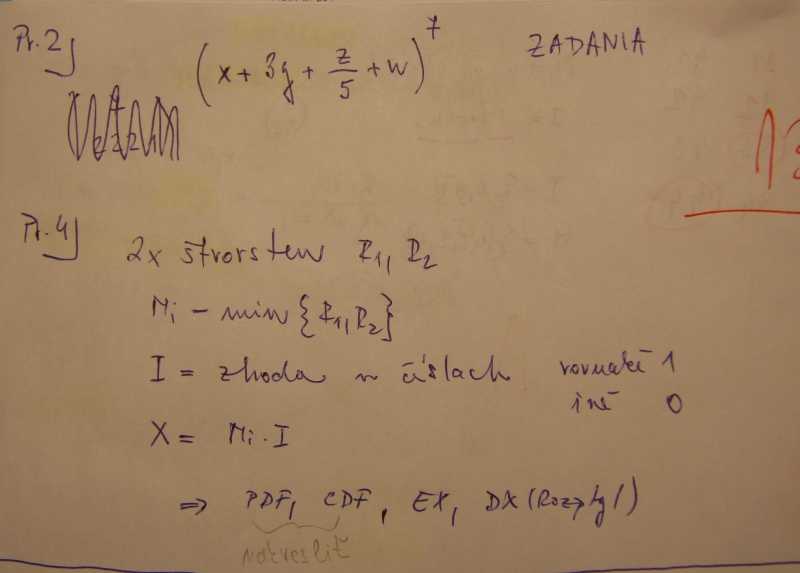 Pr. 2 ZADANIA
(x + 3y + z/5 + w)^7
13
Pr. 4
2x štvorsten R1, R2
Mi – min {R1, R2}
I = zhoda v číslach rovnaké 1
iné 0
X = Mi · I
⇒ PDF, CDF, EX, DX (Rozptyl)
nakresliť